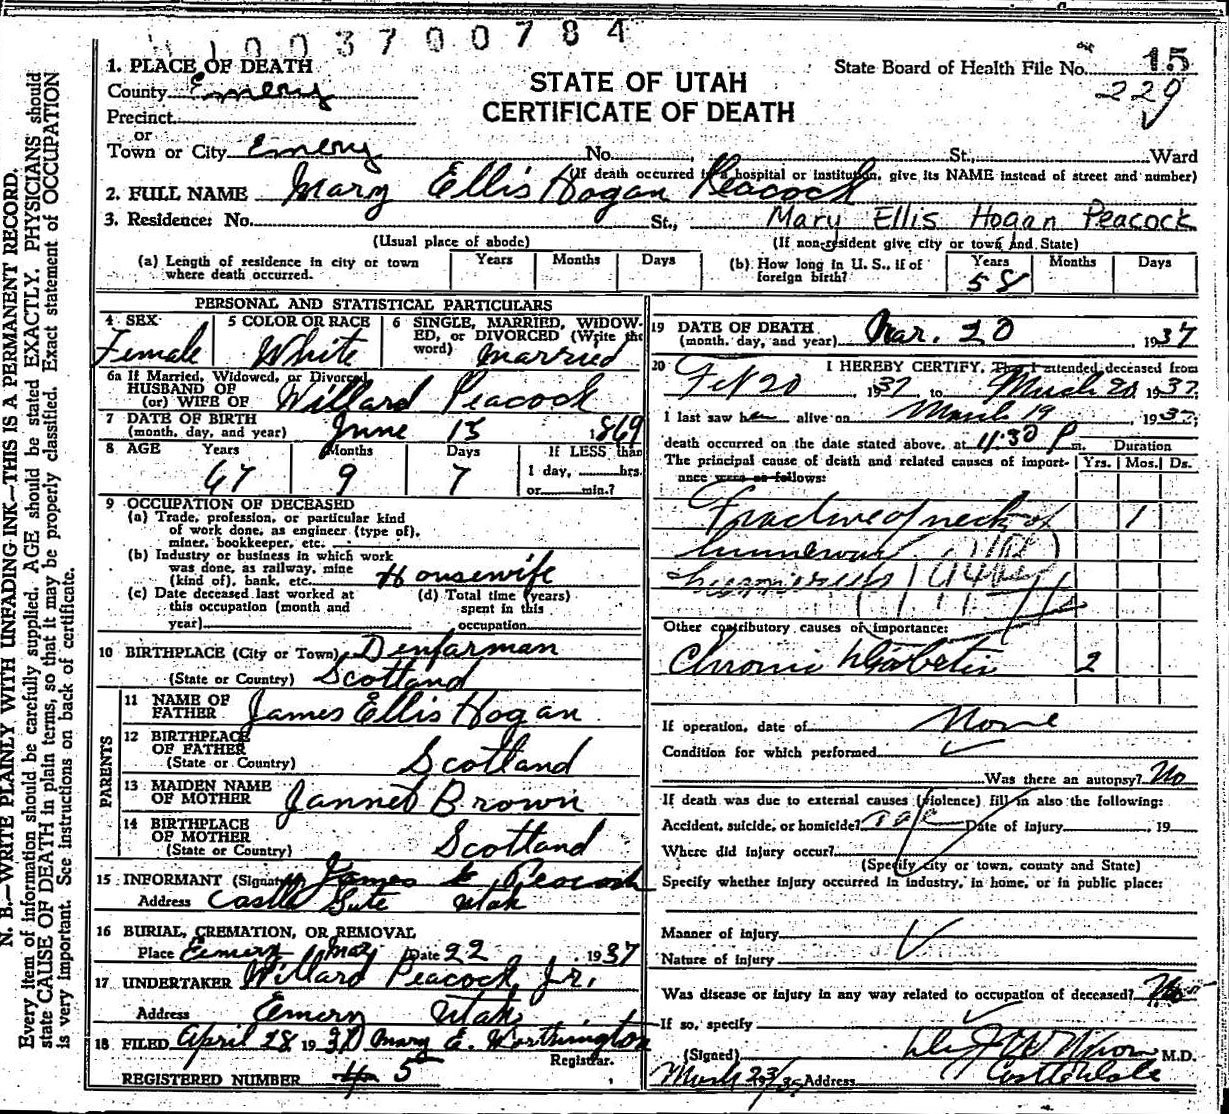 1003700784
1. PLACE OF DEATH
County Emery
Precinct
or
Town or City Emery No. , St., Ward
STATE OF UTAH
CERTIFICATE OF DEATH
State Board of Health File No. 15
229
(If death occurred in a hospital or institution, give its NAME instead of street and number)
2. FULL NAME Mary Ellis Hogan Peacock
3. Residence: No. St., Mary Ellis Hogan Peacock
(Usual place of abode) (If non-resident give city or town and State)
(a) Length of residence in city or town where death occurred. Years Months Days
(b) How long in U. S., if of foreign birth? Years 58 Months Days
PERSONAL AND STATISTICAL PARTICULARS
4 SEX Female
5 COLOR OR RACE White
6 SINGLE, MARRIED, WIDOWED, or DIVORCED (Write the word) Married
6a If Married, Widowed, or Divorced
HUSBAND OF
(or) WIFE OF Willard Peacock
7 DATE OF BIRTH
(month, day, and year) June 13 1869
8 AGE Years 67 Months 9 Days 7 If LESS than 1 day, hrs. or min.?
9 OCCUPATION OF DECEASED
(a) Trade, profession, or particular kind
of work done, as engineer (type of),
miner, bookkeeper, etc.
(b) Industry or business in which work
was done, as railway, mine
(kind of), bank, etc. Housewife
(c) Date deceased last worked at
this occupation (month and
year)
(d) Total time (years)
spent in this
occupation
10 BIRTHPLACE (City or Town) Denfarman
(State or Country) Scotland
PARENTS
11 NAME OF
FATHER James Ellis Hogan
12 BIRTHPLACE
OF FATHER
(State or Country) Scotland
13 MAIDEN NAME
OF MOTHER Jannet Brown
14 BIRTHPLACE
OF MOTHER
(State or Country) Scotland
15 INFORMANT (Signature) James E Peacock
Address Castle Gate Utah
16 BURIAL, CREMATION, OR REMOVAL
Place Emery Date Mar 22 1937
17 UNDERTAKER Willard Peacock Jr.
Address Emery Utah
18 FILED April 28 1937 Mary E. Worthington
Registrar.
REGISTERED NUMBER 5
19 DATE OF DEATH
(month, day, and year) Mar. 20, 1937
20 I HEREBY CERTIFY, That I attended deceased from
Feb 20 1937 to March 20 1937
I last saw her alive on March 19, 1937;
death occurred on the date stated above, at 11:30 P m.
The principal cause of death and related causes of importance were as follows:
Duration
Yrs. Mos. Ds.
Fracture of neck of 1
humerus
Other contributory causes of importance:
Chronic Diabetis 2
If operation, date of None
Condition for which performed
Was there an autopsy? No
If death was due to external causes (violence) fill in also the following:
Accident, suicide, or homicide? Date of injury , 19
Where did injury occur?
(Specify city or town, county and State)
Specify whether injury occurred in industry, in home, or in public place:
Manner of injury
Nature of injury
Was disease or injury in any way related to occupation of deceased? No
If so, specify
(Signed) Nixon M.D.
March 23/ Address Castle Dale
N. B.—WRITE PLAINLY WITH UNFADING INK—THIS IS A PERMANENT RECORD.
Every item of information should be carefully supplied. AGE should be stated EXACTLY. PHYSICIANS should
state CAUSE OF DEATH in plain terms, so that it may be properly classified. Exact statement of OCCUPATION
is very important. See instructions on back of certificate.